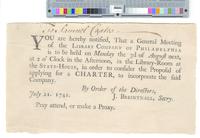 YOU are hereby notified, That a General Meeting
of the LIBRARY COMPANY OF PHILADELPHIA
is to be held on Monday the 3d of August next,
at 2 o'Clock in the Afternoon, in the Library-Room at
the STATE-HOUSE, in order to consider the Proposal of
applying for a CHARTER, to incorporate the said
Company.
By Order of the Directors,
July 22. 1741. J. BREINTNALL, Secry.
Pray attend, or make a Proxy.